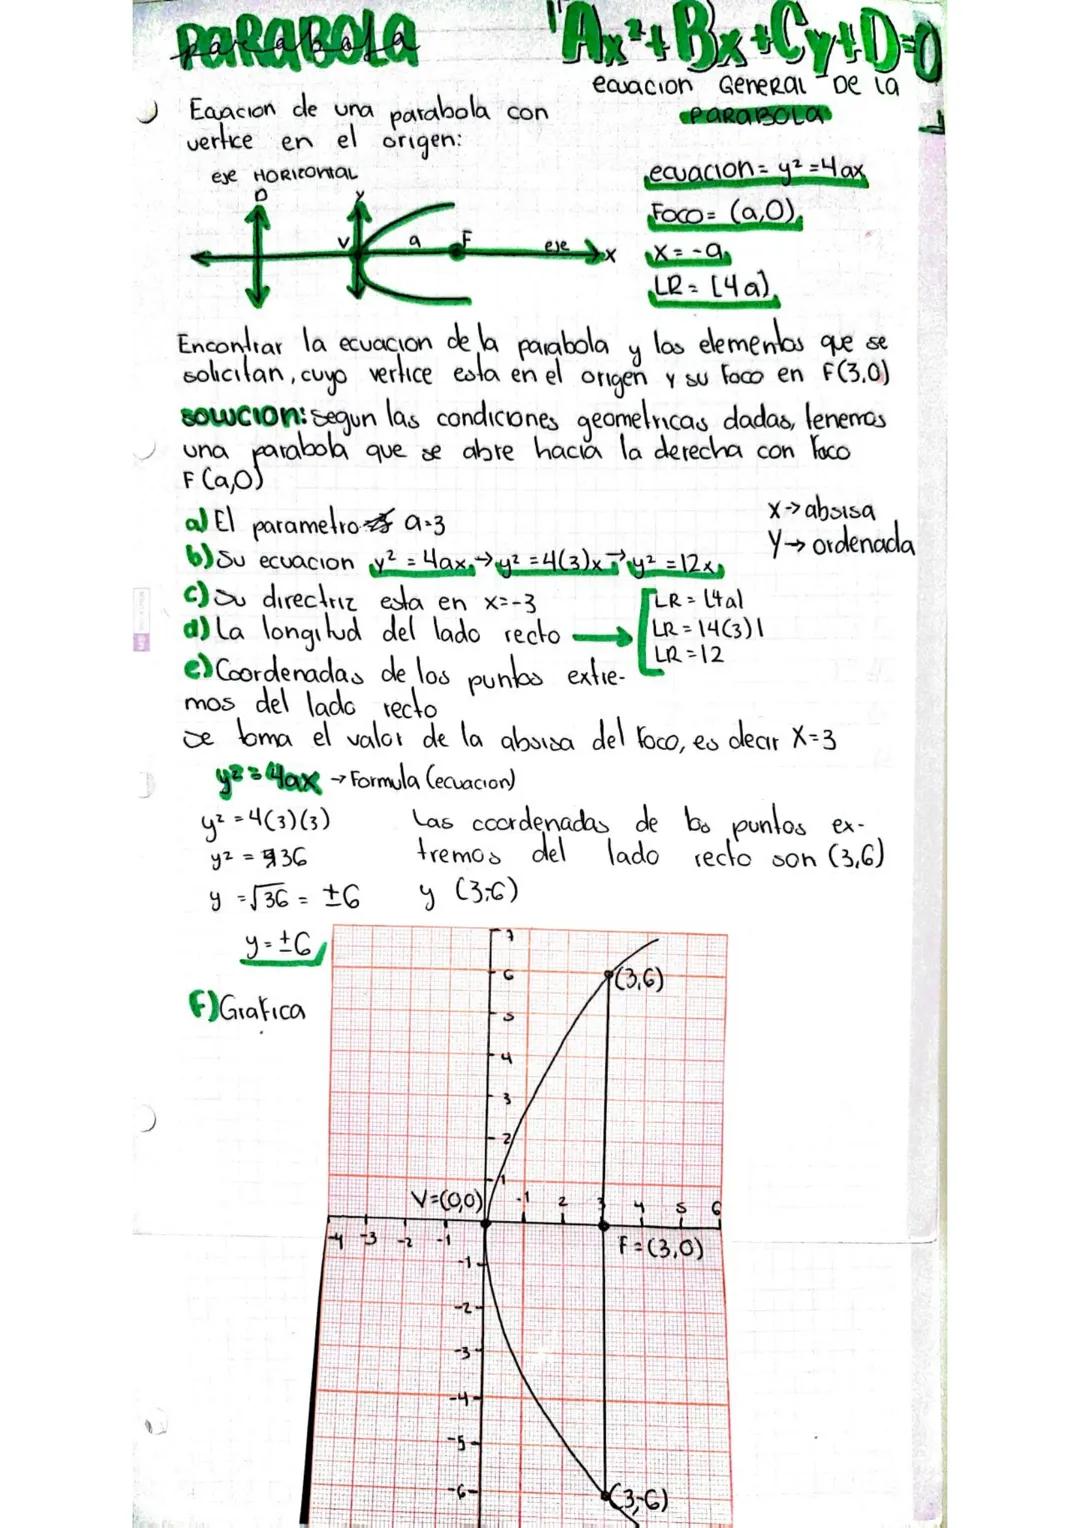 PARABOLA
parabola
"Ax²+Bx+Cy+D=0
ecuacion General De la
PARABOLA
Eqacion de una parabola con
vertice en el origen:
eje HORIZONTAL
D
y
V
a
F
eje
x
ecuacion= y²=4ax
Foco= (a,0)
x=-a
LR= [4a]
Encontrar la ecuacion de la parabola y los elementos que se
solicitan, cuyo vertice esta en el origen y su foco en F(3,0)
SOLUCION: Segun las condiciones geometricas dadas, tenemos
una parabola que se abre hacia la derecha con foco
F (a,0)
a) El parametro a=3
x→absisa
y→ordenada
b) Su ecuacion y²=4ax→y²=4(3)x→y²=12x
c) Su directriz esta en x=-3
d) La longitud del lado recto →
LR= |4a|
LR=|4(3)|
LR=12
e) Coordenadas de los puntos extre-
mos del lado recto
se toma el valor de la absisa del foco, es decir x=3
y²=4ax → Formula (ecuacion)
y²=4(3)(3)
y²=36
y=√36=±6
y=±6
Las coordenadas de los puntos ex-
tremos del lado recto son (3,6)
y (3,-6)
F) Grafica
7
6
5
4
3
2
1
(3,6)
V=(0,0)
-1 2 3 4 5 6
-4 -3 -2 -1
F=(3,0)
-1
-2
-3
-4
-5
-6
(3,-6)